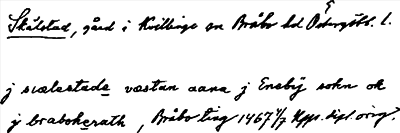 Skälstad, gård i Kvillinge sn Bråbo hd Östergötl. l.
j siælastade væstan aana j Eneby sokn ok
j brabokerath, Bråbo ting 1467 1/7 Kpps. dipl. orig.